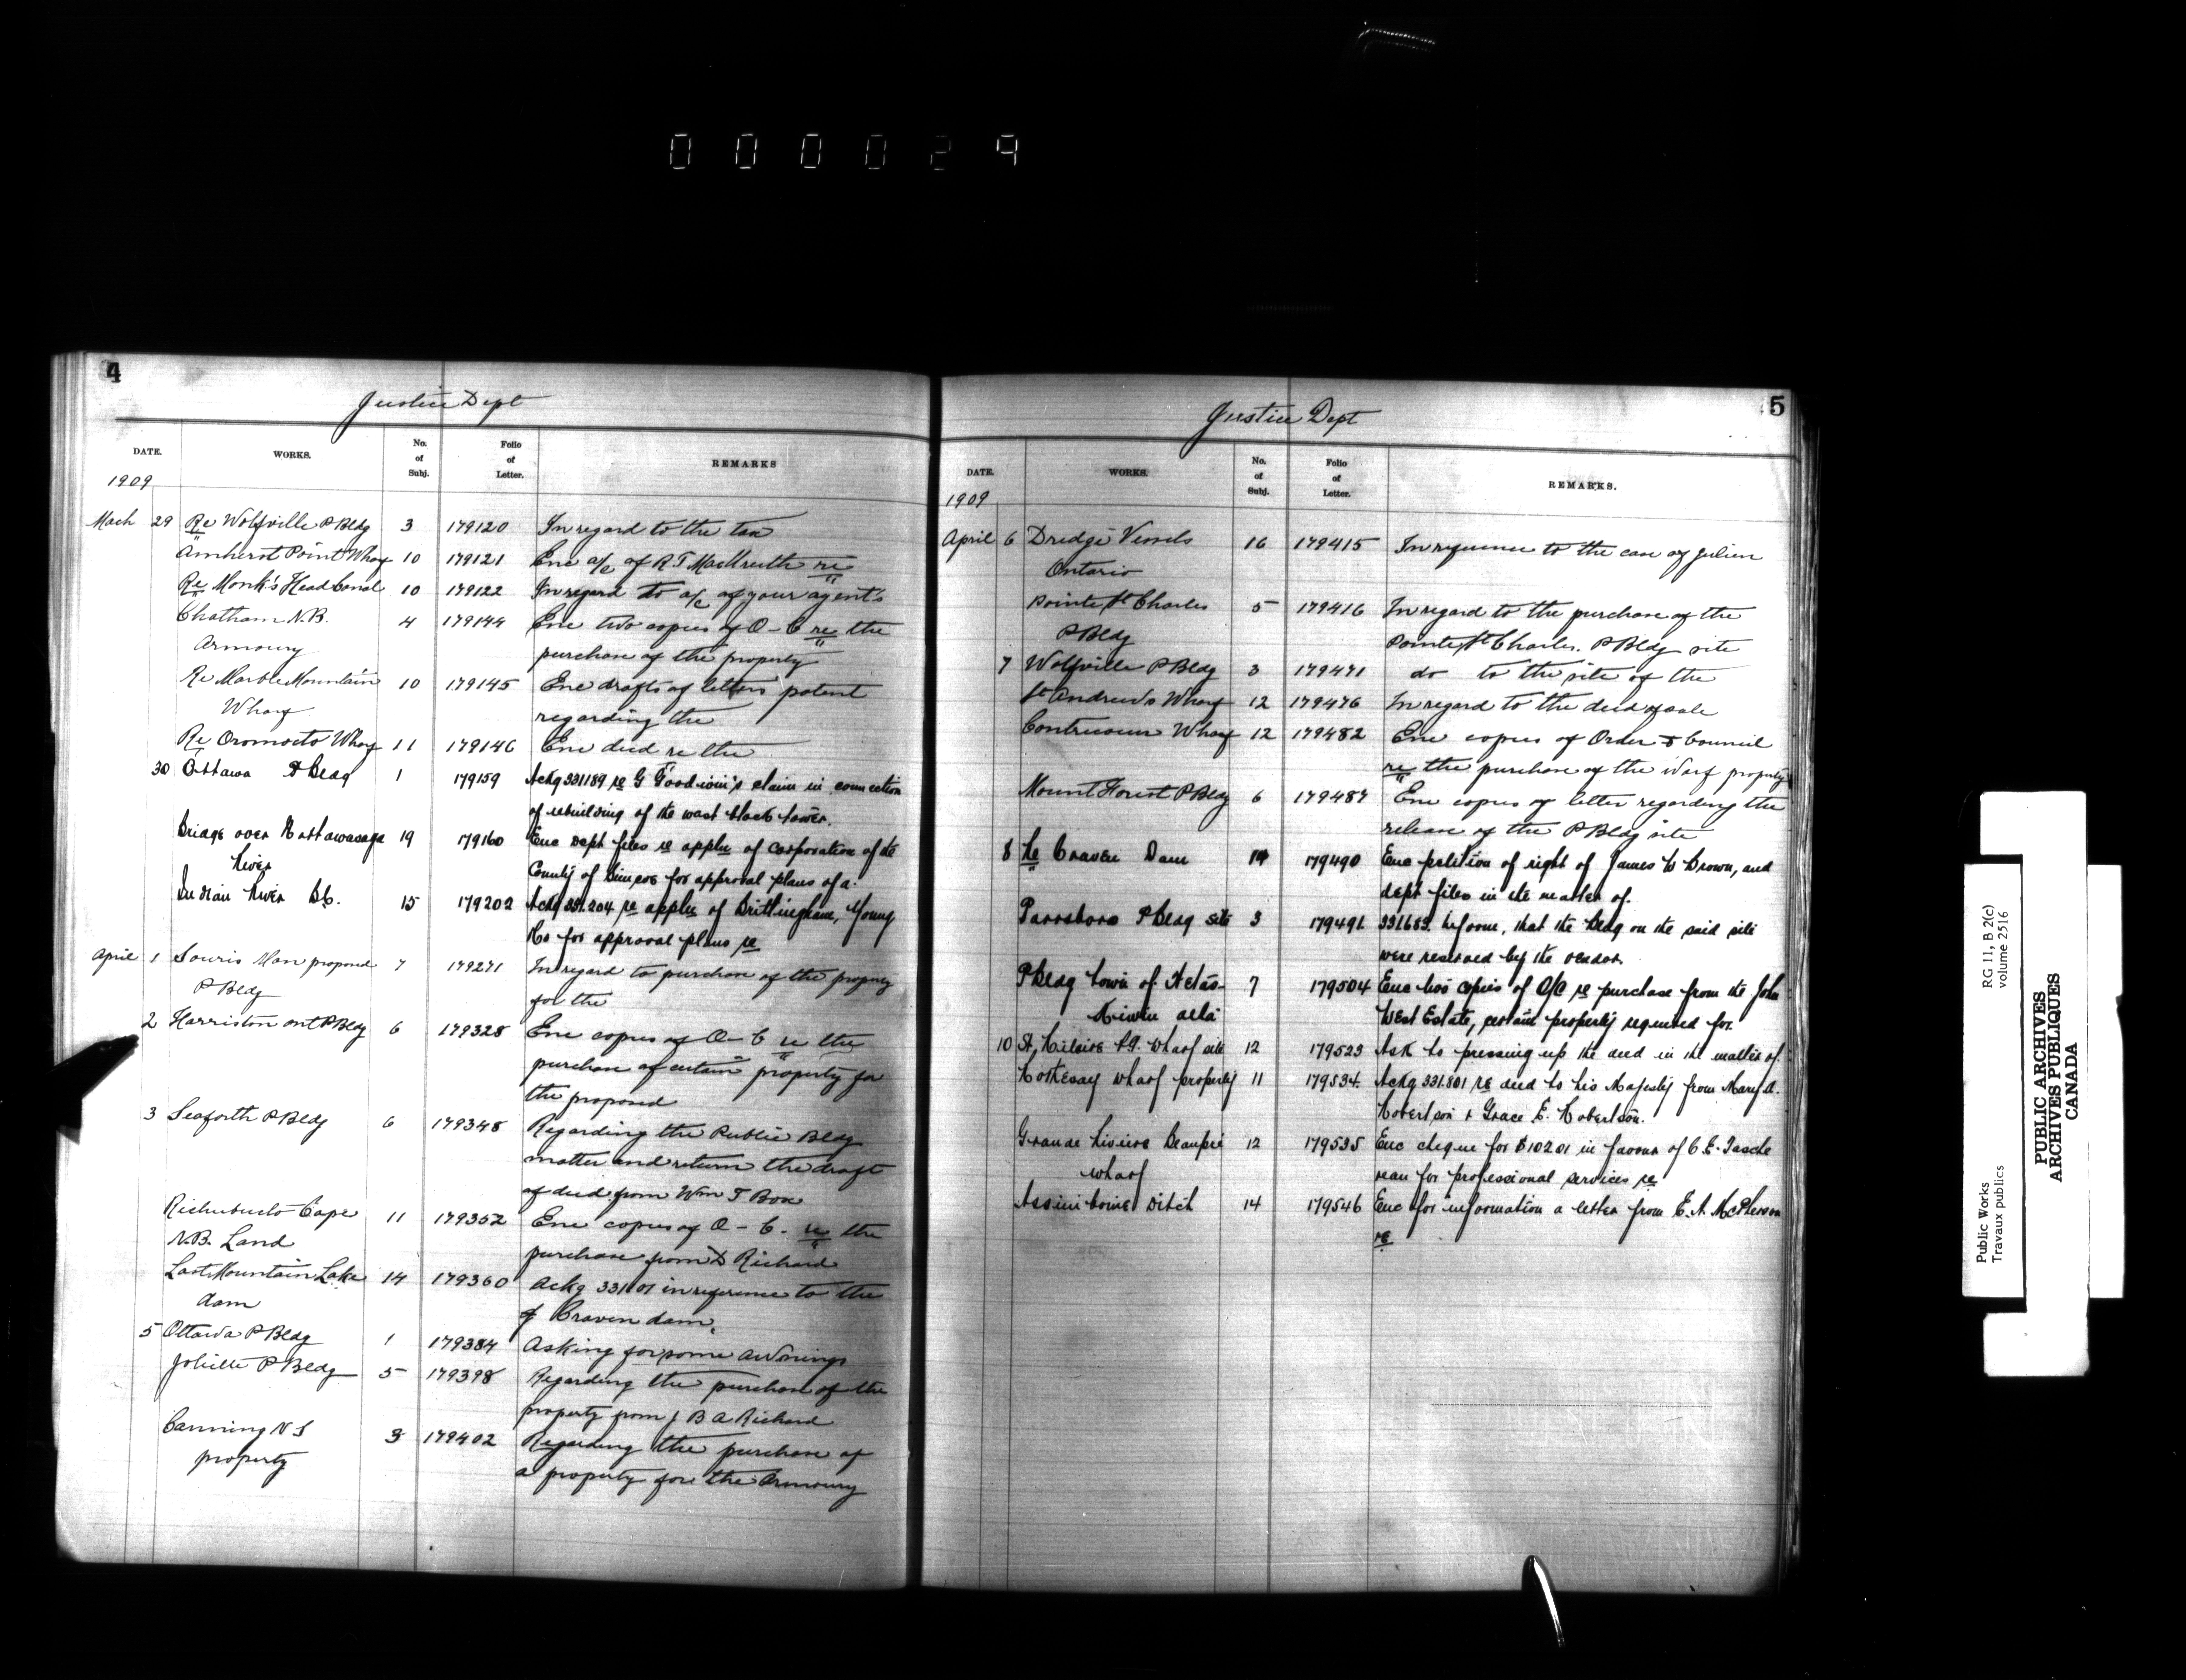 000029
4
Justice Dept
DATE. WORKS. No. of Subj. Folio of Letter. REMARKS
1909
Mach 29 Re Wolfville P Bldg 3 179120 In regard to the tax
Amherst Point Wharf 10 179121 Enc a/c of R T re
Re Monk's Head Canal 10 179122 In regard to a/c of your agent's
Chatham N.B. 4 179144 Enc two copies of O-C re the
Armoury purchase of the property
Re Marble Mountain 10 179145 Enc drafts of letters patent
Wharf regarding the
Re Oromocto Wharf 11 179146 Enc deed re the
30 Ottawa P Bldg 1 179159 Ackg 331189 re G Goodwin's claim in connection
of rebuilding of the west block tower.
Bridge over Nottawasaga 19 179160 Enc Dept files re applн of corporation of the
River County of Simcoe for approval plans of a.
Indian River BC. 15 179202 Ackg 331.204 re appln of Brittingham, Young
Ko for approval plans re
April 1 Souris Man proposed 7 179271 In regard to purchase of the property
P Bldg for the
2 Harriston Ont P Bldg 6 179328 Enc copies of O-C re the
purchase of certain property for
the proposed
3 Seaforth P Bldg 6 179348 Regarding the Public Bldg
matter and return the draft
of deed from Wm T Box
Richibucto Cape 11 179352 Enc copies of O-C. re the
N.B. Land purchase from D Richard
Last Mountain Lake 14 179360 Ackg 331101 in reference to the
dam of Craven dam.
5 Ottawa P Bldg 1 179384 Asking for some awnings
Joliette P Bldg 5 179398 Regarding the purchase of the
property from J B A Richard
Canning N S 3 179402 Regarding the purchase of
property a property for the Armoury
5
Justice Dept
DATE. WORKS. No. of Subj. Folio of Letter. REMARKS.
1909
April 6 Dredge Vessels 16 179415 In reference to the case of Julien
Ontario
Pointe St Charles 5 179416 In regard to the purchase of the
P Bldg Pointe St Charles. P Bldg site
7 Wolfville P Bldg 3 179471 do to the site of the
St Andrews Wharf 12 179476 In regard to the deed of sale
Contrecoeur Wharf 12 179482 Enc copies of Order & Council
re the purchase of the warf property
Mount Forest P Bldg 6 179487 Enc copies of letter regarding the
release of the P Bldg site
8 Re Craven Dam 14 179490 Enc petition of right of James W Brown, and
dept files in the matter of.
Parrsboro P Bldg site 3 179491. 331.683. Inform, that the bldg on the said site
were reserved by the vendor.
P Bldg town of Wetas- 7 179504 Enc two copies of O/C re purchase from the John
kiwin alta West Estate, certain property required for.
10 St, Hilaire P.Q. wharf site 12 179523 Ask to pressing up the deed in the matter of.
Rothesay wharf property 11 179534. Ackg 331.801 re deed to his Majesty from Mary A.
Robertson & Grace E. Robertson.
Grande Riviere Beaupré 12 179535 Enc cheque for $102.01 in favour of C.E. Tasche
wharf reau for professional services re
Assiniboine Ditch 14 179546 Enc for information a letter from E.A. McPherson
re
Public Works
Travaux publics
RG 11, B 2(c)
volume 2516
PUBLIC ARCHIVES
ARCHIVES PUBLIQUES
CANADA